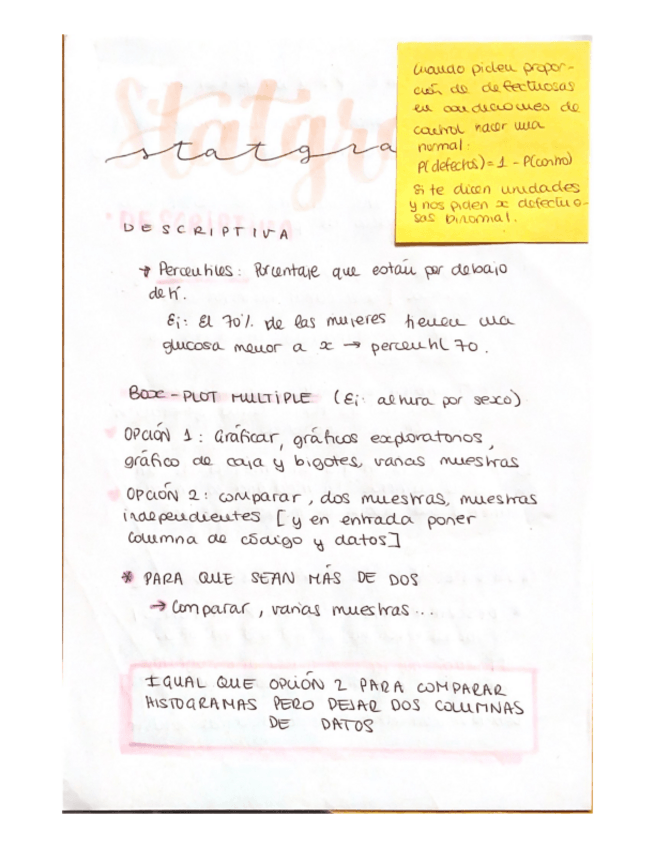 Statgra
statgra
Cuando piden propor-
ción de defectuosas
en condiciones de
control hacer una
normal:
P(defectos) = 1 - P(conino)
Si te dicen unidades
y nos piden x defectuo-
sas binomial.
DESCRIPTIVA
→ Percentiles: Porcentaje que están por debajo
de ti.
Ej: El 70% de las mujeres tienen una
glucosa menor a x → percentil 70.
BOX-PLOT MULTIPLE (Ej: altura por sexo)
OPCIÓN 1: Graficar, gráficos exploratorios,
gráfico de caja y bigotes, varias muestras
OPCIÓN 2: comparar, dos muestras, muestras
independientes [y en entrada poner
columna de código y datos]
* PARA QUE SEAN MÁS DE DOS
→ Comparar, varias muestras...
IGUAL QUE OPCIÓN 2 PARA COMPARAR
HISTOGRAMAS PERO DEJAR DOS COLUMNAS
DE DATOS